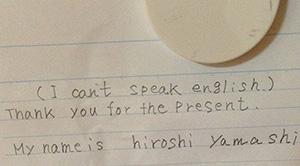 (I can't speak english.)
Thank you for the Present.
My name is hiroshi yamashi